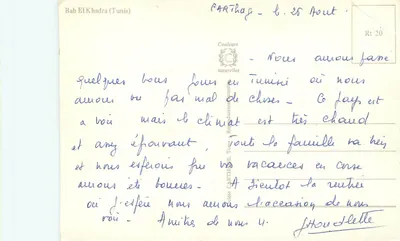 Bab El Khadra (Tunis)
CARTHAG - le 25 Aout -
Rt 20
Couleurs naturelles
- Nous avons passé
quelques bons jours en Tunisie où nous
avons vu pas mal de choses - Ce pays est
a voir mais le climat est très chaud
et assez éprouvant, Toute la famille va très
et nous espérons que vos vacances en corse
auront été bonnes - A bientot la rentrée
où j'espère nous aurons l'occasion de nous
voir - Amitiés de nous 4.